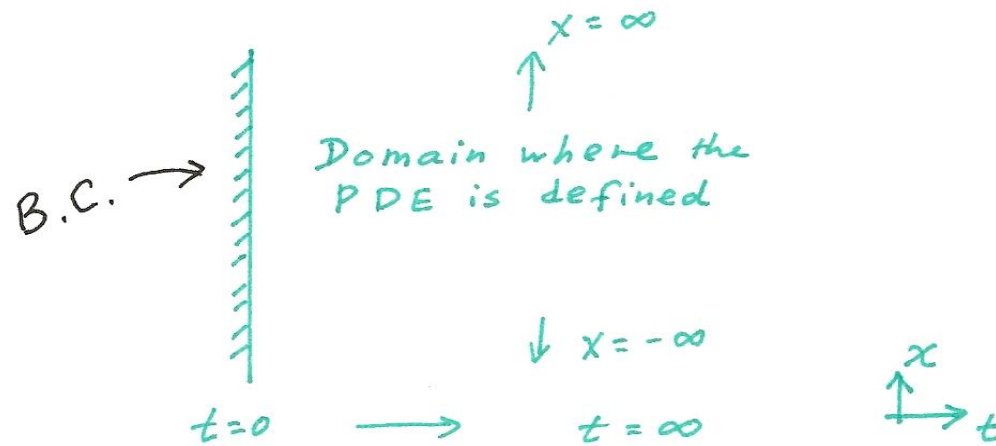 x = ∞
Domain where the
PDE is defined
B.C.
x = -∞
x
t=0
t = ∞
t